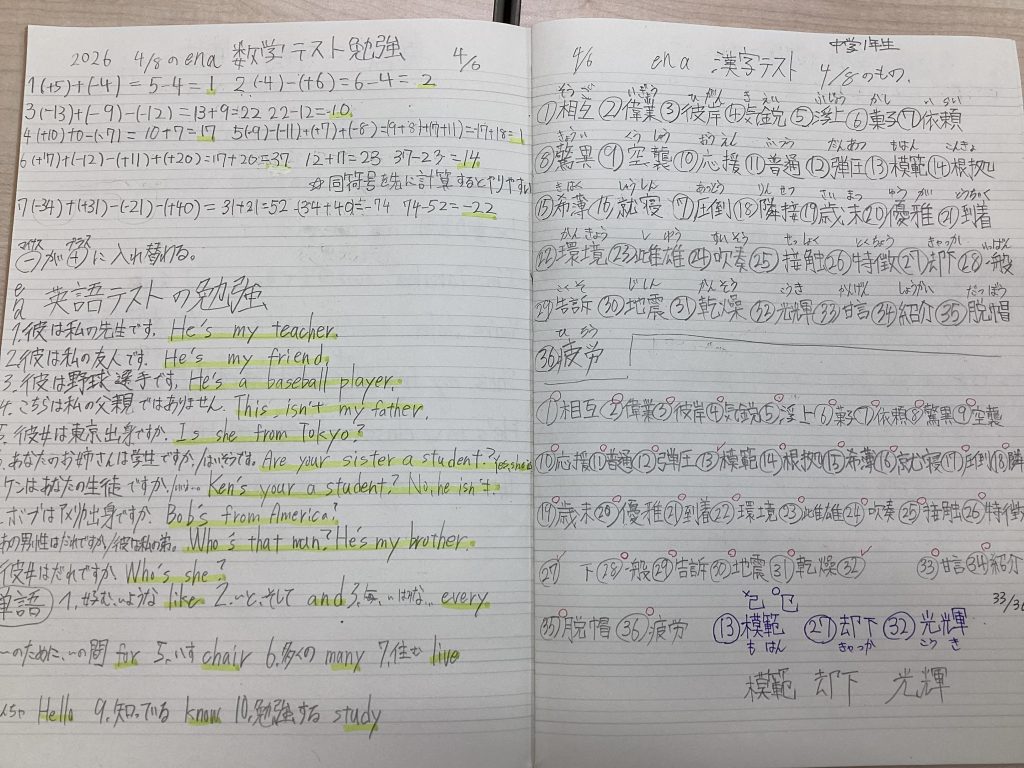 2026 4/8のena 数学テスト勉強 4/6
1(+5)+(-4)=5-4=1 2.(-4)-(+6)=6-4=2
3(-13)+(-9)-(-12)=13+9=22 22-12=-10
4(+10)+0-(-7)=10+7=17 5(-9)-(-11)+(+7)+(-8)=(9+8)+(7+11)=-17+18=1
6(+17)+(-12)-(+11)+(+20)=17+20=37 12+11=23 37-23=14
☆同符号を先に計算するとやりやすい
7(-34)+(+31)-(-21)-(+40)=31+21=52 (34+40)=-74 74-52=-22
マイナス プラス
㊀が㊉に入れ替わる。
ena 英語テストの勉強
1.彼は私の先生です。He's my teacher.
2.彼は私の友人です。He's my friend.
3.彼は野球選手です。He's a baseball player.
4.こちらは私の父親ではありません。This isn't my father.
5.彼女は東京出身ですか。Is she from Tokyo?
あなたのお姉さんは学生ですか。/はいそうです。Are your sister a student?/Yes, she is
ケンはあなたの生徒ですか。/いいえ... Ken's your a student? No, he isn't.
ボブはアメリカ出身ですか。Bob's from America?
あの男性はだれですか/彼は私の弟。Who's that man? He's my brother.
彼女はだれですか Who's she?
単語 1.好む、いような like 2.〜と、そして and 3.毎、いはかな... every
〜のために、〜の間 for 5.いす chair 6.多くの many 7.住む live
Hello 9.知っている know 10.勉強する study
中学1年生
4/6 ena 漢字テスト 4/8のもの。
そうご いぎょう ひがん きえい ふじょう かし いらい
①相互②偉業③彼岸④気鋭⑤浮上⑥菓子⑦依頼
きょうい くうしゅう おうえん ふつう だんあつ もはん こんきょ
⑧驚異⑨空襲⑩応援⑪普通⑫弾圧⑬模範⑭根拠
きはく しゅうしん あっとう りんせつ さいまつ ゆうが とうちゃく
⑮希薄⑯就寝⑰圧倒⑱隣接⑲歳末⑳優雅㉑到着
かんきょう しゆう すいそう せっしょく とくちょう きゃっか いっぱん
㉒環境㉓雌雄㉔吹奏㉕接触㉖特徴㉗却下㉘一般
こくそ じしん かんそう こうき かんげん しょうかい だつぼう
㉙告訴㉚地震㉛乾燥㉜光輝㉝甘言㉞紹介㉟脱帽
ひろう
㊱疲労
①相互②偉業③彼岸④気鋭⑤浮上⑥菓子⑦依頼⑧驚異⑨空襲
⑩応援⑪普通⑫弾圧⑬模範⑭根拠⑮希薄⑯就寝⑰圧倒⑱隣
⑲歳末⑳優雅㉑到着㉒環境㉓雌雄㉔吹奏㉕接触㉖特徴
㉗ 下㉘一般㉙告訴㉚地震㉛乾燥㉜ ㉝甘言㉞紹介
33/36
㉟脱帽㊱疲労 ⑬模範 ㉗却下 ㉜光輝
もはん きゃっか こうき
模範 却下 光輝